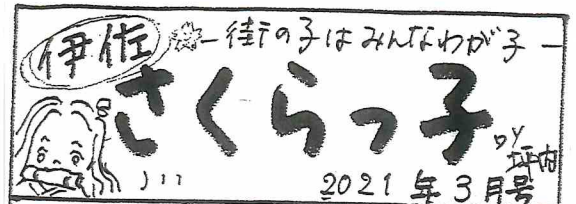 伊佐
－街の子はみんなわが子－
さくらっ子
by 坪内
2021年3月号